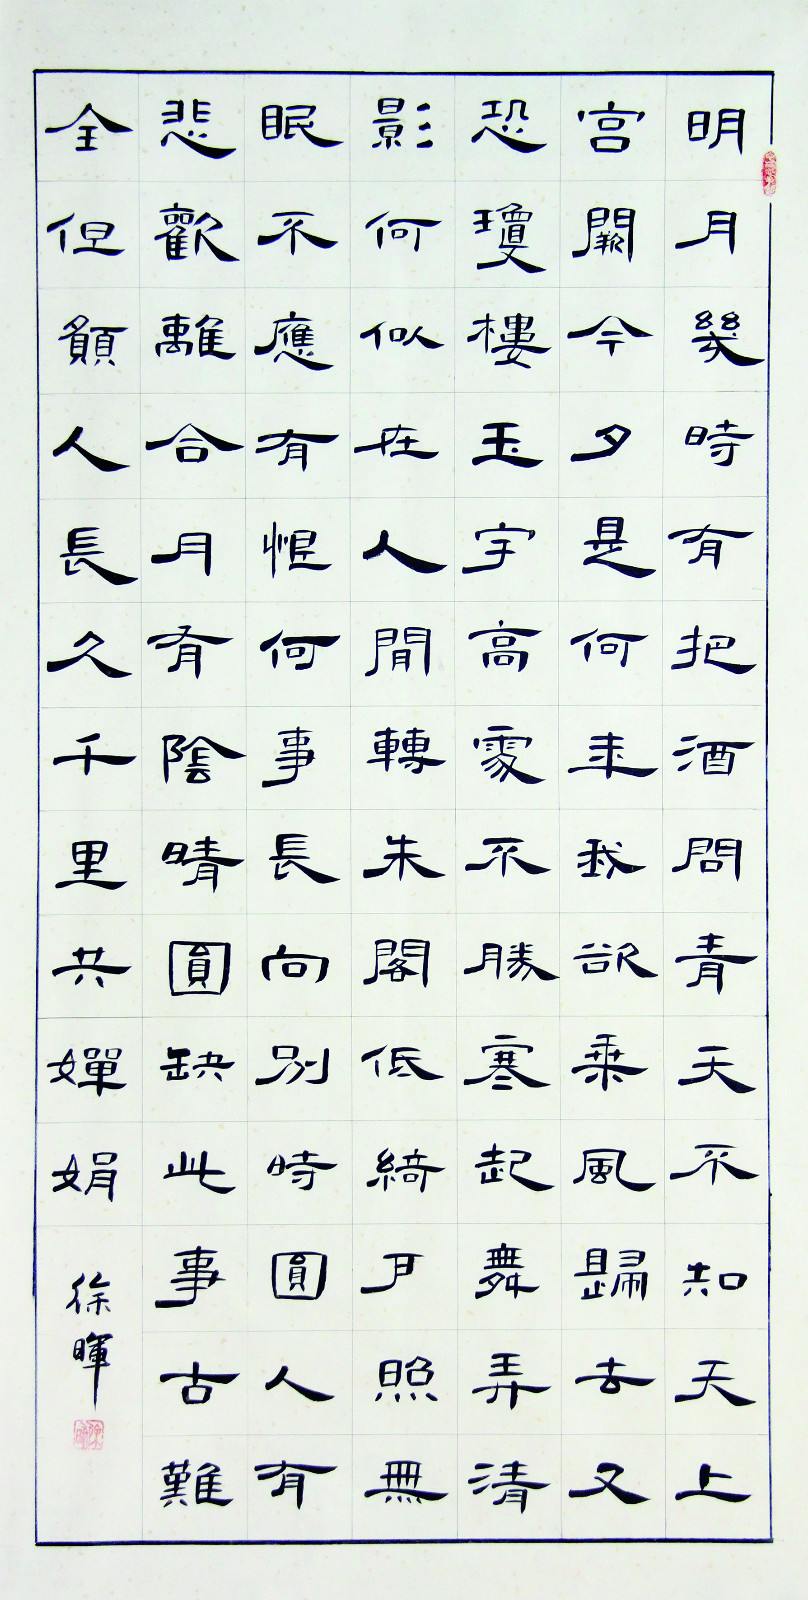 明月幾時有把酒問青天不知天上
宫闕今夕是何年我欲乘風歸去又
恐瓊樓玉宇高處不勝寒起舞弄清
影何似在人間轉朱閣低綺戶照無
眠不應有恨何事長向別時圓人有
悲歡離合月有陰晴圓缺此事古難
全但願人長久千里共嬋娟
徐暉